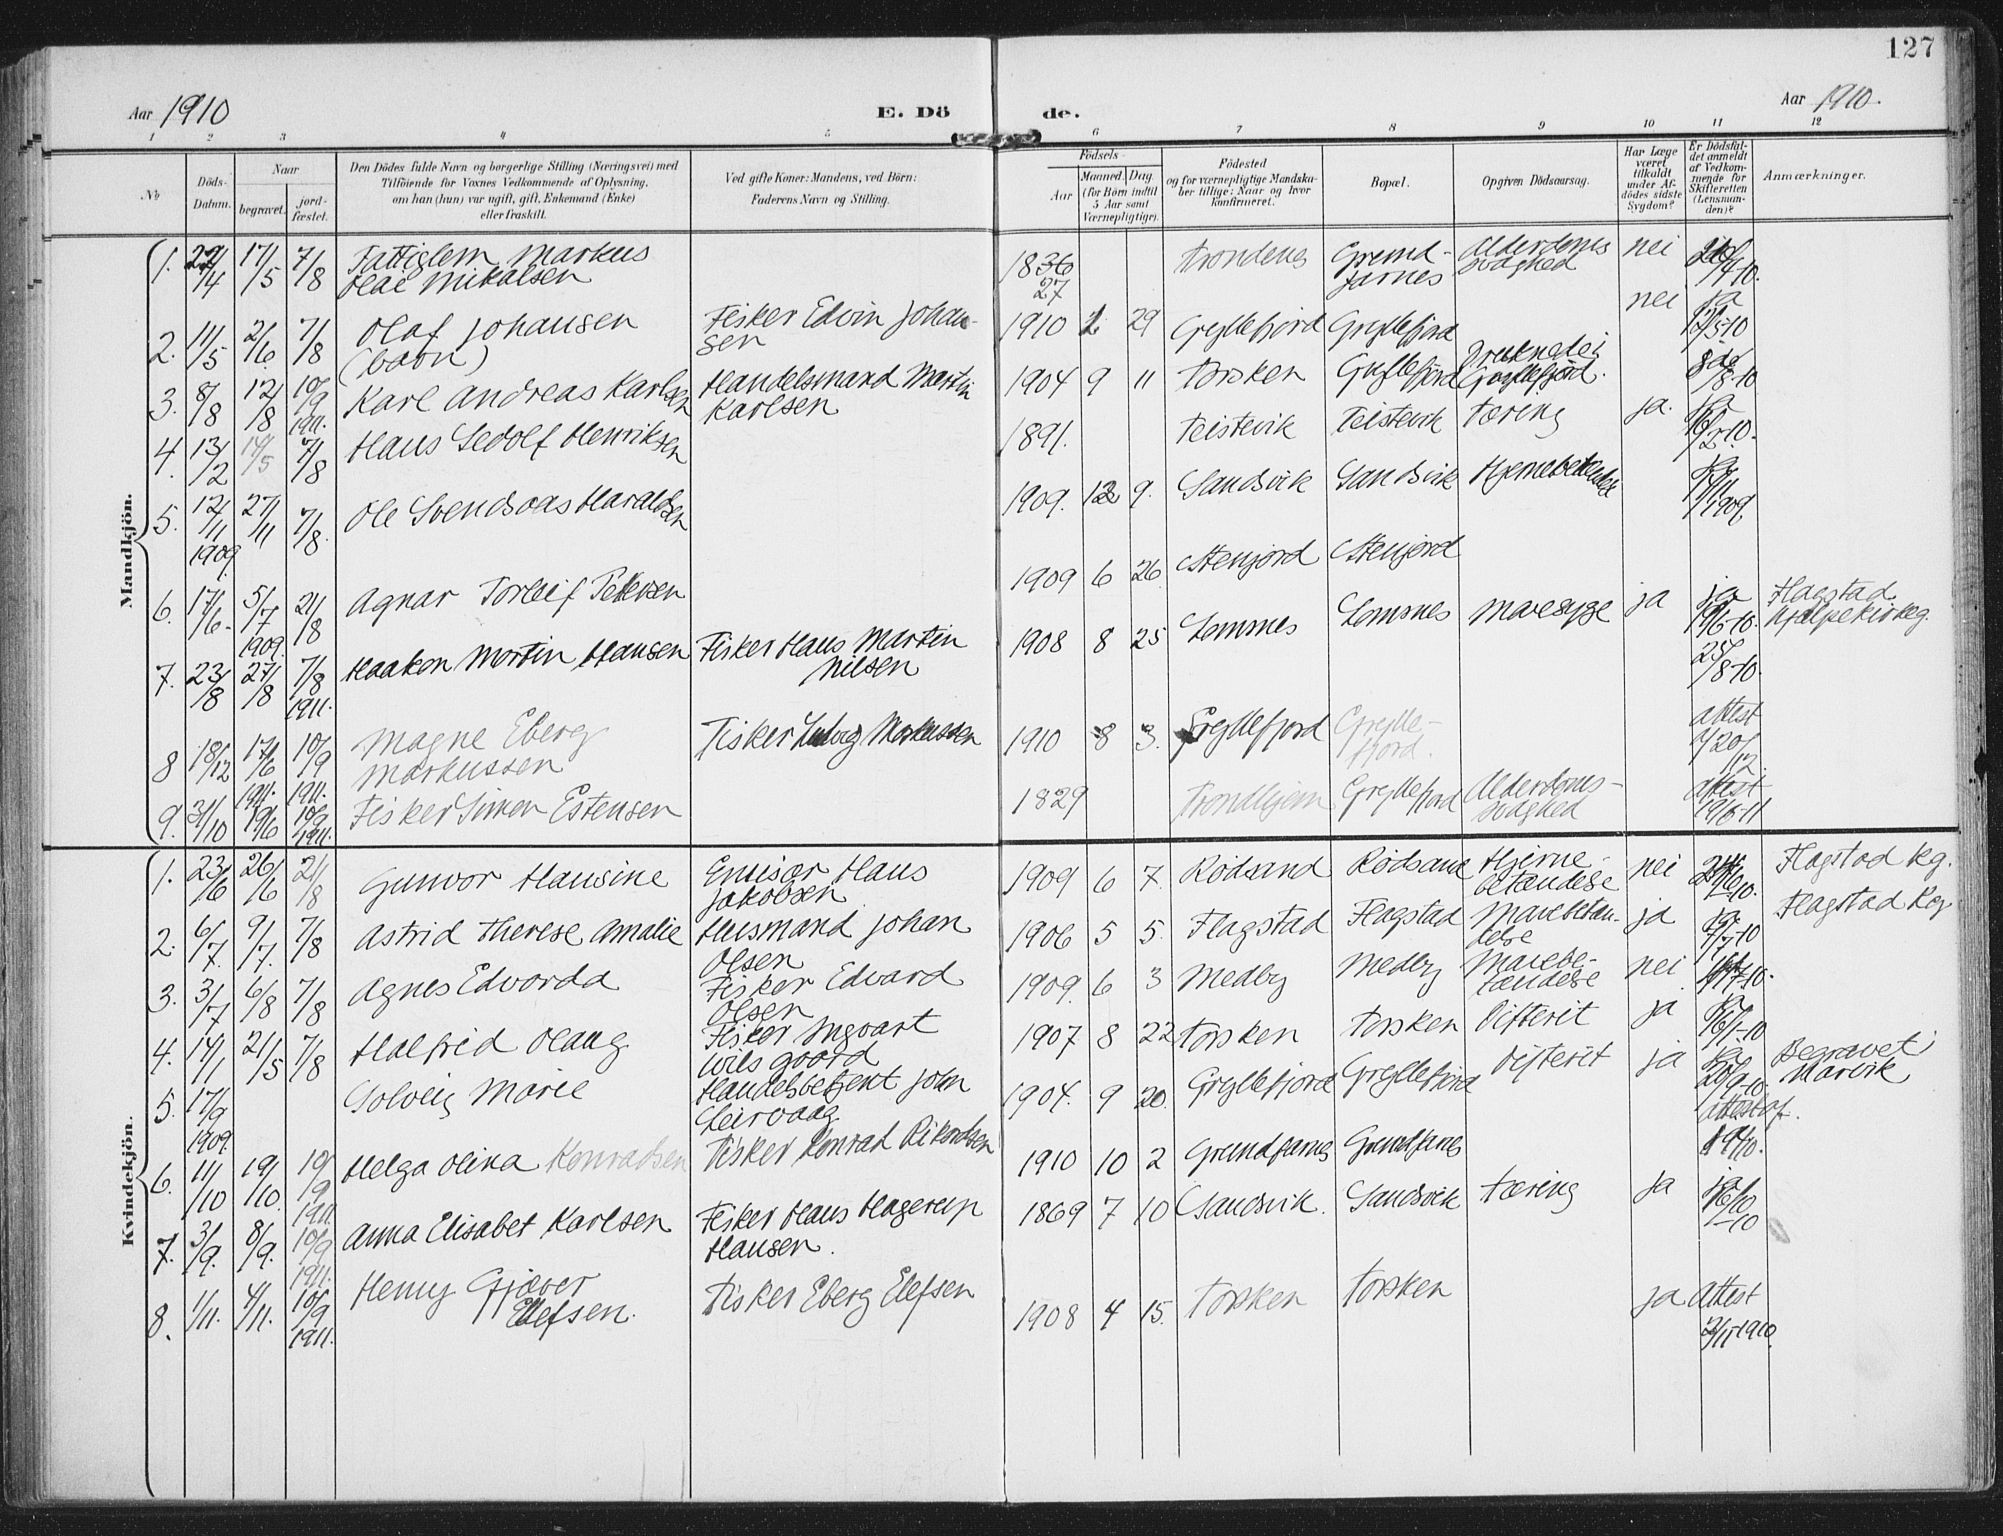 127
Aar 1910
E. Dö de.
Aar 1910.
1 2 3 4 5 6 7 8 9 10 11 12
No
Döds-Datum.
Naar
begravet.
jord-fæstet.
Den Dödes fulde Navn og borgerlige Stilling (Næringsvei) med
Tilföiende for Voxnes Vedkommende af Oplysning,
om han (hun) var ugift, gift, Enkemand (Enke)
eller fraskilt.
Ved gifte Koner: Mandens, ved Börn:
Faderens Navn og Stilling.
Födsels-
Aar
Maaned. Dag
(for Börn indtil
5 Aar samt
Værnepligtige).
Födested
og for værnepligtige Mandska-
ber tillige: Naar og hvor
konfirmeret.
Bopæl.
Opgiven Dödsaarsag.
Har Læge
været
tilkaldt
under Af-
dödes sidste
Sygdom?
Er Dödsfal-
det anmeldt
af Vedkom-
mende for
Skifteretten
(Lensman-
den)?
Anmærkninger.
Mandkjön.
1. 17/5 7/8 Fattiglem Markus 1836 Trondenes Grund- Alderdoms nei
Olai Mikalsen 27 farnes svaghed
2. 11/5 2/6 7/8 Olaf Johansen Fisker Edvin Johan- 1910 29 Gryllefjord Gryllefjord nei ja
(barn) sen
3. 8/8 12/8 10/9 1911. Karl Andreas Karlsen Handelsmand Martin 1904 9 11 Torsken Gryllefjord Druknede i 8/8-10
Karlsen Gryllefjord.
4. 13/2 14/5 7/8 Hans Sedolf Henriksen 1891. Teistevik Teistevik Tæring ja.
5. 12/11 1909. 27/11 7/8. Ole Svendsaas Haraldsen 1909. 12 9. Sandsvik Sandsvik Hjernebetendelse 1909.
6. 17/6- 5/7 21/8 Agnar Torleif Petersen 1909 6 26 Stenjord Stenjord
7. 23/8 1909. 27/8 7/8 Haakon Martin Hansen Fisker Hans Martin 1908 8 25 Lemsnes Lemsnes Mavesyge ja ja 19/6-10. Flagstad
Nilsen 25/8-10. hjælpekirkeg.
1911.
8 18/12 17/6 10/9 Magne Eberg Fisker Ludvig Markussen 1910 8 3. Gryllefjord Grylle- attest
Markussen fjord. 20/12
1911. 1911.
9. 31/10 19/6 10/9 1911. Fisker Simon Estensen 1829 Trondhjem Gryllefjord Alderdoms- attest
svaghed 19/6-11
Kvindekjön.
1. 23/6 26/6 21/8 Gunvor Hansine Emisær Hans 1909 6 7 Rödsand Rödsand Hjerne- nei Flagstad kg.
Jakobsen betændelse
2. 6/7. 9/7. 7/8 Astrid Therese Amalie Husmand Johan 1906 5 5. Flagstad Flagstad Mavebetæn- ja Flagstad Kg
Olsen delse
3. 3/7 6/8 7/8 Agnes Edvarda Fisker Edvard 1909. 6 3 Medby Medby Mavebe- nei
Olsen tændelse
4. 14/1 21/5 7/8 Halfrid Olaug Fisker Ingvart 1907 8 22 Torsken Torsken Difterit ja
Wilsgaard
5. 17/9 Solveig Marie Handelsbetjent John 1904. 9 20. Gryllefjord Gryllefjord Difterit ja 20/9-10 Begravet i
Leirvaag attest af. Mærvik
1909.
6. 11/10 19/10. 10/9 1911 Helga Olina Konradsen Fisker Konrad Rikardsen 1910 10 2 Grundfarnes Grundfarnes
7. 3/9. 8/9. 10/9 1911. Anna Elisabet Karlsen Fisker Hans Hagerup 1869 7 10 Sandsvik. Sandsvik Tæring ja
Hansen.
8. 1/11. 4/11. 10/9 1911. Henny Gjæver Fisker Eberg Elefsen 1908 4 15. Torsken Torsken ja Attest
Elefsen. 2/11 1910.